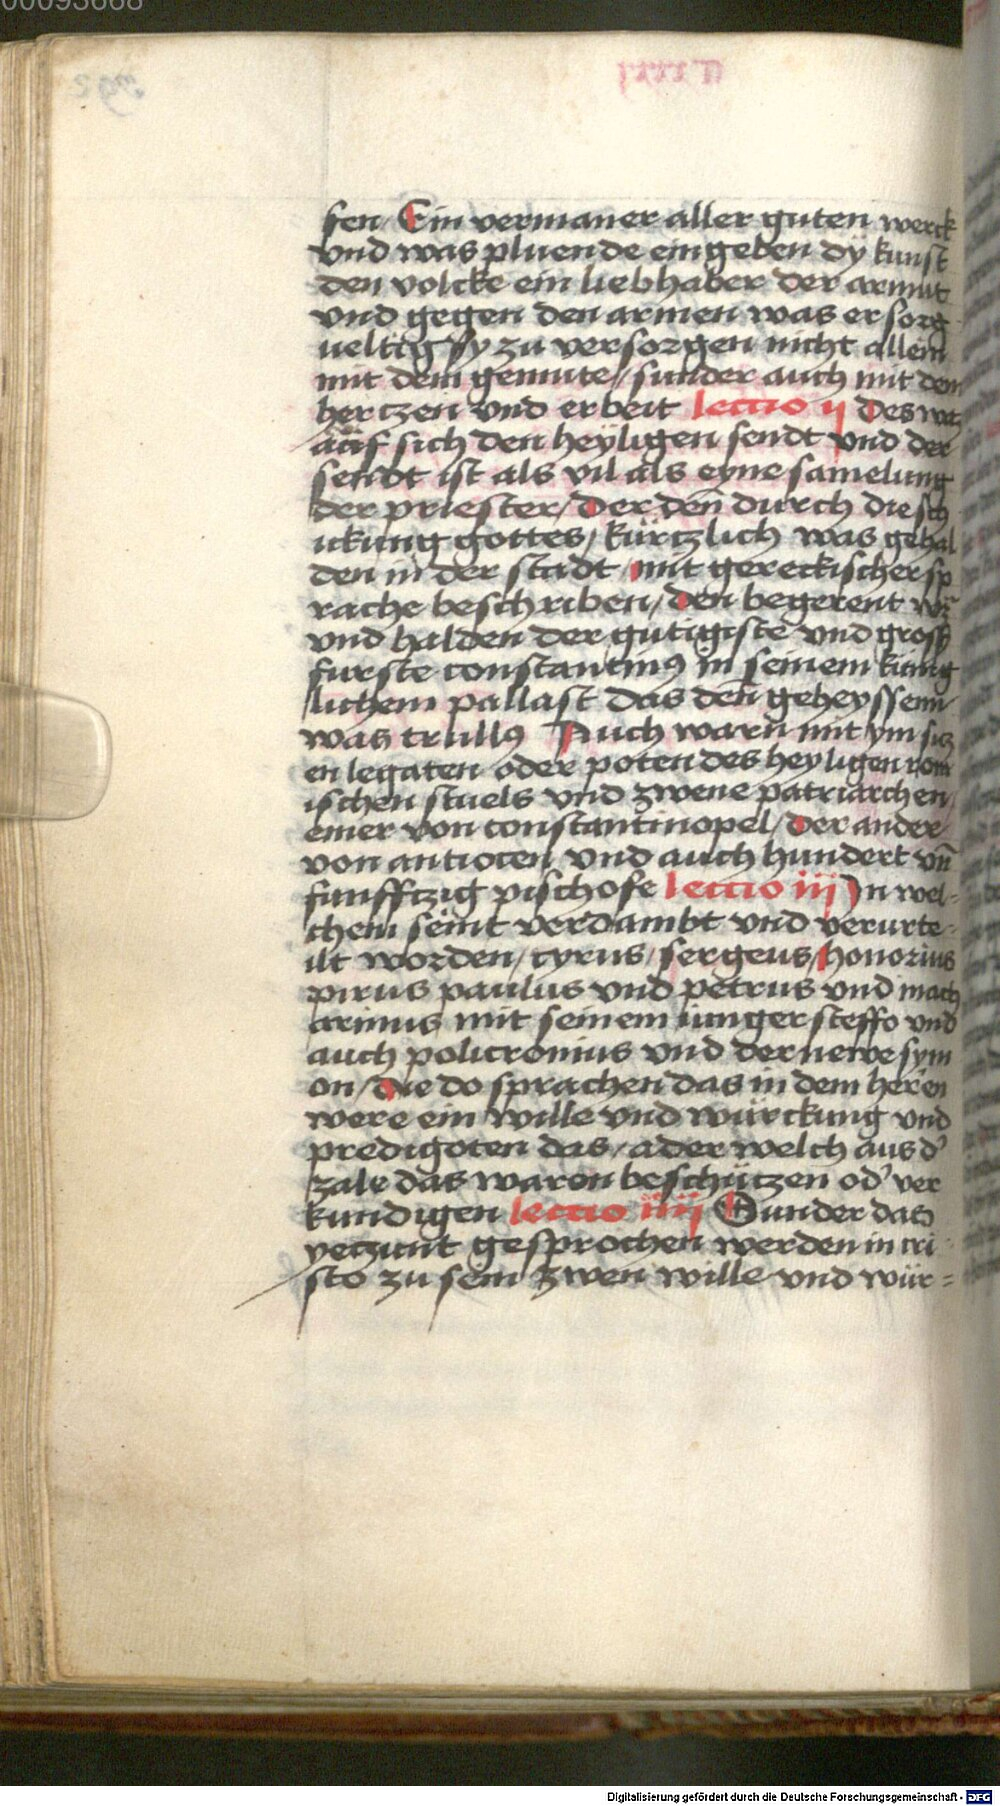 00093668
sen / Ein vermaner aller guten werck
vnd was pluende eingeben dÿ kunst
den volcke ein liebhaber der armut
vnd gegen den armen was er sorg
ueltig sy zu versorgen nicht allein
mit dem gemute / sunder auch mit dem
hertzen vnd erbeit lectio ij Des
auf sich den heyligen sendt vnd der
sendt ist als vil als eyne samelung
der priester / Der den durch die sch
ickung gottes / kürtzlich was gehal
den in der stadt / mit gereckischer sp
rache beschriben / den begerent
vnd halden der gutigiste vnd gross
furste constantinus in seinem kunig
lichem pallast das den geheyssenn
was trullus Auch warn mit ym
en legaten oder poten des heyligen rom
ischen stuels vnd zwene patriarchen /
einer von constantinopel / der ander
von antiocen vnd auch hundert vn̄
funfftzig pischofe lectio iij In wel-
chem seint verdambt vnd verurte-
ilt worden / cyrus / sergeus / honorius
pirus paulus vnd petrus vnd mach
arinus mit seinem iunger steffo vnd
auch policronius vnd der newe sym
on / die do sprachen das in dem heren
were ein wille vnd würckung vnd
predigoten das / ader welch aus d'
zale das waron beschützen od' ver
kundigen lectio iiij Sunder das
yetzunt gesprochen werden in cri
sto zu sein zwen wille vnd wür-
Digitalisierung gefördert durch die Deutsche Forschungsgemeinschaft - DFG